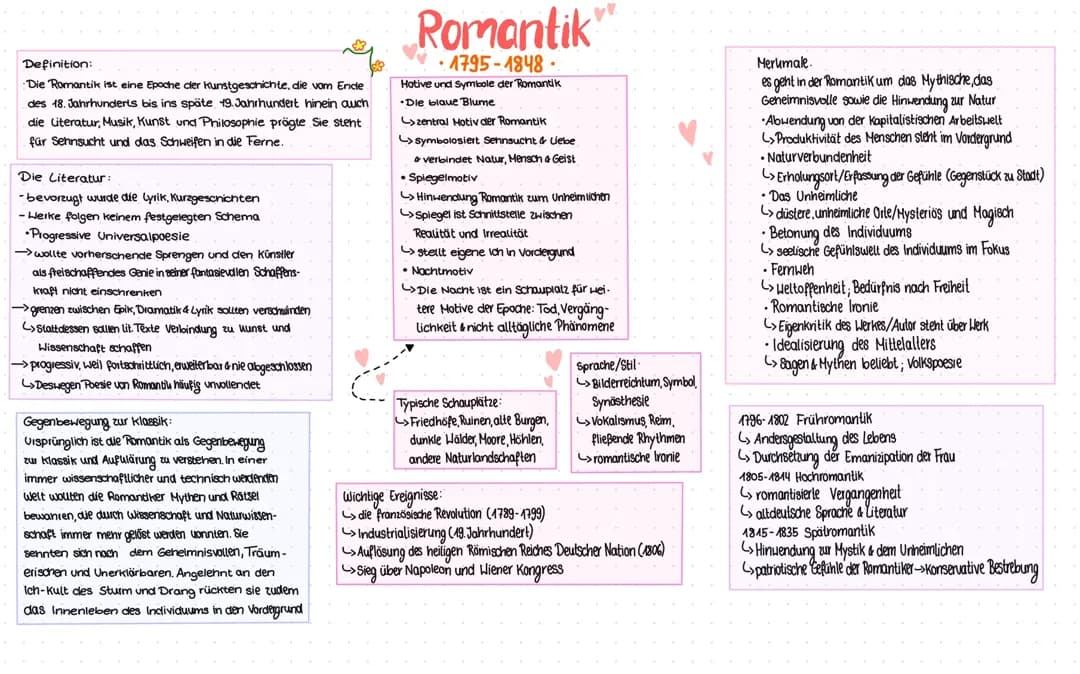 Romantik
· 1795-1848 ·
Definition:
·Die Romantik ist eine Epoche der Kunstgeschichte, die vom Ende
des 18. Jahrhunderts bis ins späte 19. Jahrhundert hinein auch
die Literatur, Musik, Kunst und Philosophie prägte Sie steht
für Sehnsucht und das Schweifen in die Ferne.
Die Literatur:
- bevorzugt wurde die Lyrik, Kurzgeschichten
- Werke folgen keinem festgelegten Schema
• Progressive Universalpoesie
→ wollte vorherschende Sprengen und den Künstler
als freischaffendes Genie in seiner fantasievollen Schaffens-
kraft nicht einschrenken
→ grenzen zwischen Epik, Dramatik & Lyrik sollten verschwinden
↳ Stattdessen sollen lit. Texte Verbindung zu Kunst und
Wissenschaft schaffen
→ progressiv, weil fortschrittlich, erweiterbar & nie abgeschlossen
↳ Deswegen Poesie von Romantik häufig unvollendet
Gegenbewegung zur Klassik:
Ursprünglich ist die Romantik als Gegenbewegung
zur Klassik und Aufklärung zu verstehen. In einer
immer wissenschaftlicher und technisch werdenden
Welt wollten die Romantiker Mythen und Rätsel
bewahren, die durch Wissenschaft und Naturwissen-
schaft immer mehr gelöst werden konnten. Sie
sehnten sich nach dem Geheimnisvollen, Träum-
erischen und Unerklärbaren. Angelehnt an den
Ich-Kult des Sturm und Drang rückten sie zudem
das Innenleben des Individuums in den Vordergrund
Motive und Symbole der Romantik
• Die blaue Blume
↳ zentral Motiv der Romantik
↳ symbolosiert Sehnsucht & Liebe
& verbindet Natur, Mensch & Geist
• Spiegelmotiv
↳ Hinwendung Romantik zum Unheimlichen
↳ Spiegel ist Schnittstelle zwischen
Realität und Irrealität
↳ stellt eigene Ich in Vordergund
• Nachtmotiv
↳ Die Nacht ist ein Schauplatz für wei-
tere Motive der Epoche: Tod, Vergäng-
lichkeit & nicht alltägliche Phänomene
Typische Schauplätze:
↳ Friedhöfe, Ruinen, alte Burgen,
dunkle Wälder, Moore, Höhlen,
andere Naturlandschaften
Sprache/Stil·
↳ Bilderreichtum, Symbol,
Synästhesie
↳ Vokalismus, Reim,
fließende Rhythmen
↳ romantische Ironie
Wichtige Ereignisse:
↳ die französische Revolution (1789-1799)
↳ Industrialisierung (19. Jahrhundert)
↳ Auflösung des heiligen Römischen Reiches Deutscher Nation (1806)
↳ Sieg über Napoleon und Wiener Kongress
Merkmale·
es geht in der Romantik um das Mythische, das
Geheimnisvolle sowie die Hinwendung zur Natur
• Abwendung von der Kapitalistischen Arbeitswelt
↳ Produktivität des Menschen steht im Vordergrund
• Naturverbundenheit
↳ Erholungsort/Erfassung der Gefühle (Gegenstück zu Stadt)
• Das Unheimliche
↳ düstere, unheimliche Orte/Mysteriös und Magisch
• Betonung des Individuums
↳ seelische Gefühlswelt des Individuums im Fokus
• Fernweh
↳ Weltoffenheit; Bedürfnis nach Freiheit
• Romantische Ironie
↳ Eigenkritik des Werkes/Autor steht über Werk
• Idealisierung des Mittelalters
↳ Sagen & Mythen beliebt; Volkspoesie
1796-1802 Frühromantik
↳ Andersgestaltung des Lebens
↳ Durchsetzung der Emanizpation der Frau
1805-1814 Hochromantik
↳ romantisierte Vergangenheit
↳ altdeutsche Sprache & Literatur
1815-1835 Spätromantik
↳ Hinwendung zur Mystik & dem Unheimlichen
↳ patriotische Gefühle der Romantiker → Konservative Bestrebung